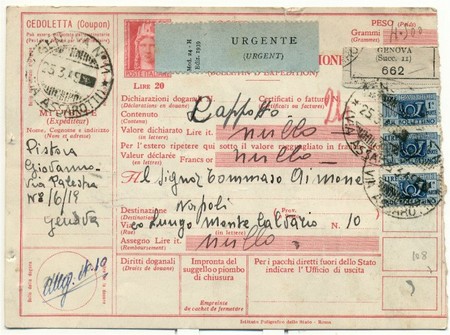 CEDOLETTA (Coupon)
Mod. 24-H
Ediz. 1939
URGENTE
(URGENT)
PESO (Poids)
Grammi
GENOVA
(Succ. 11)
662
LIRE 20
POSTE ITALIANE
BULLETIN D'EXPÉDITION
25.3.5
VIA ASSAROTTI
MITTENTE
(Expéditeur)
Cognome, nome e indirizzo
(Nom et adresse)
Pistora
Giovanna
Via Palestra
N 8/6/19
Genova
Dichiarazioni doganali
(Déclarations en douane)
Certificati o fatture
Contenuto
(Contenu)
Cappotto
Valore dichiarato Lire it.
nullo
Per l'estero ripetere qui sotto il valore ragguagliato in franchi
Valeur déclarée Francs or
(en lettres)
nullo
Al Signor Tommaso Aimone
Destinazione
(Destination)
Napoli
Via
(Rue)
Lungo Monte Calvario N. 10
Assegno Lire it.
(Remboursement)
(in lettere)
nullo
Diritti doganali
(Droits de douane)
Impronta del
suggello o piombo
di chiusura
Empreinte
du cachet de fermeture
Per i pacchi diretti fuori dello Stato
indicare l'Ufficio di uscita
108
Istituto Poligrafico dello Stato - Roma